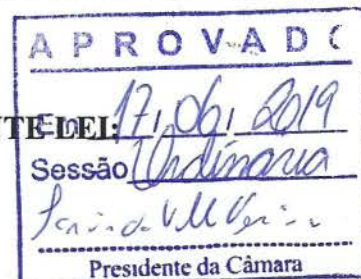 APROVADO
NTE LEI:
Em 17, 06, 2019
Sessão Ordinaria
Presidente da Câmara